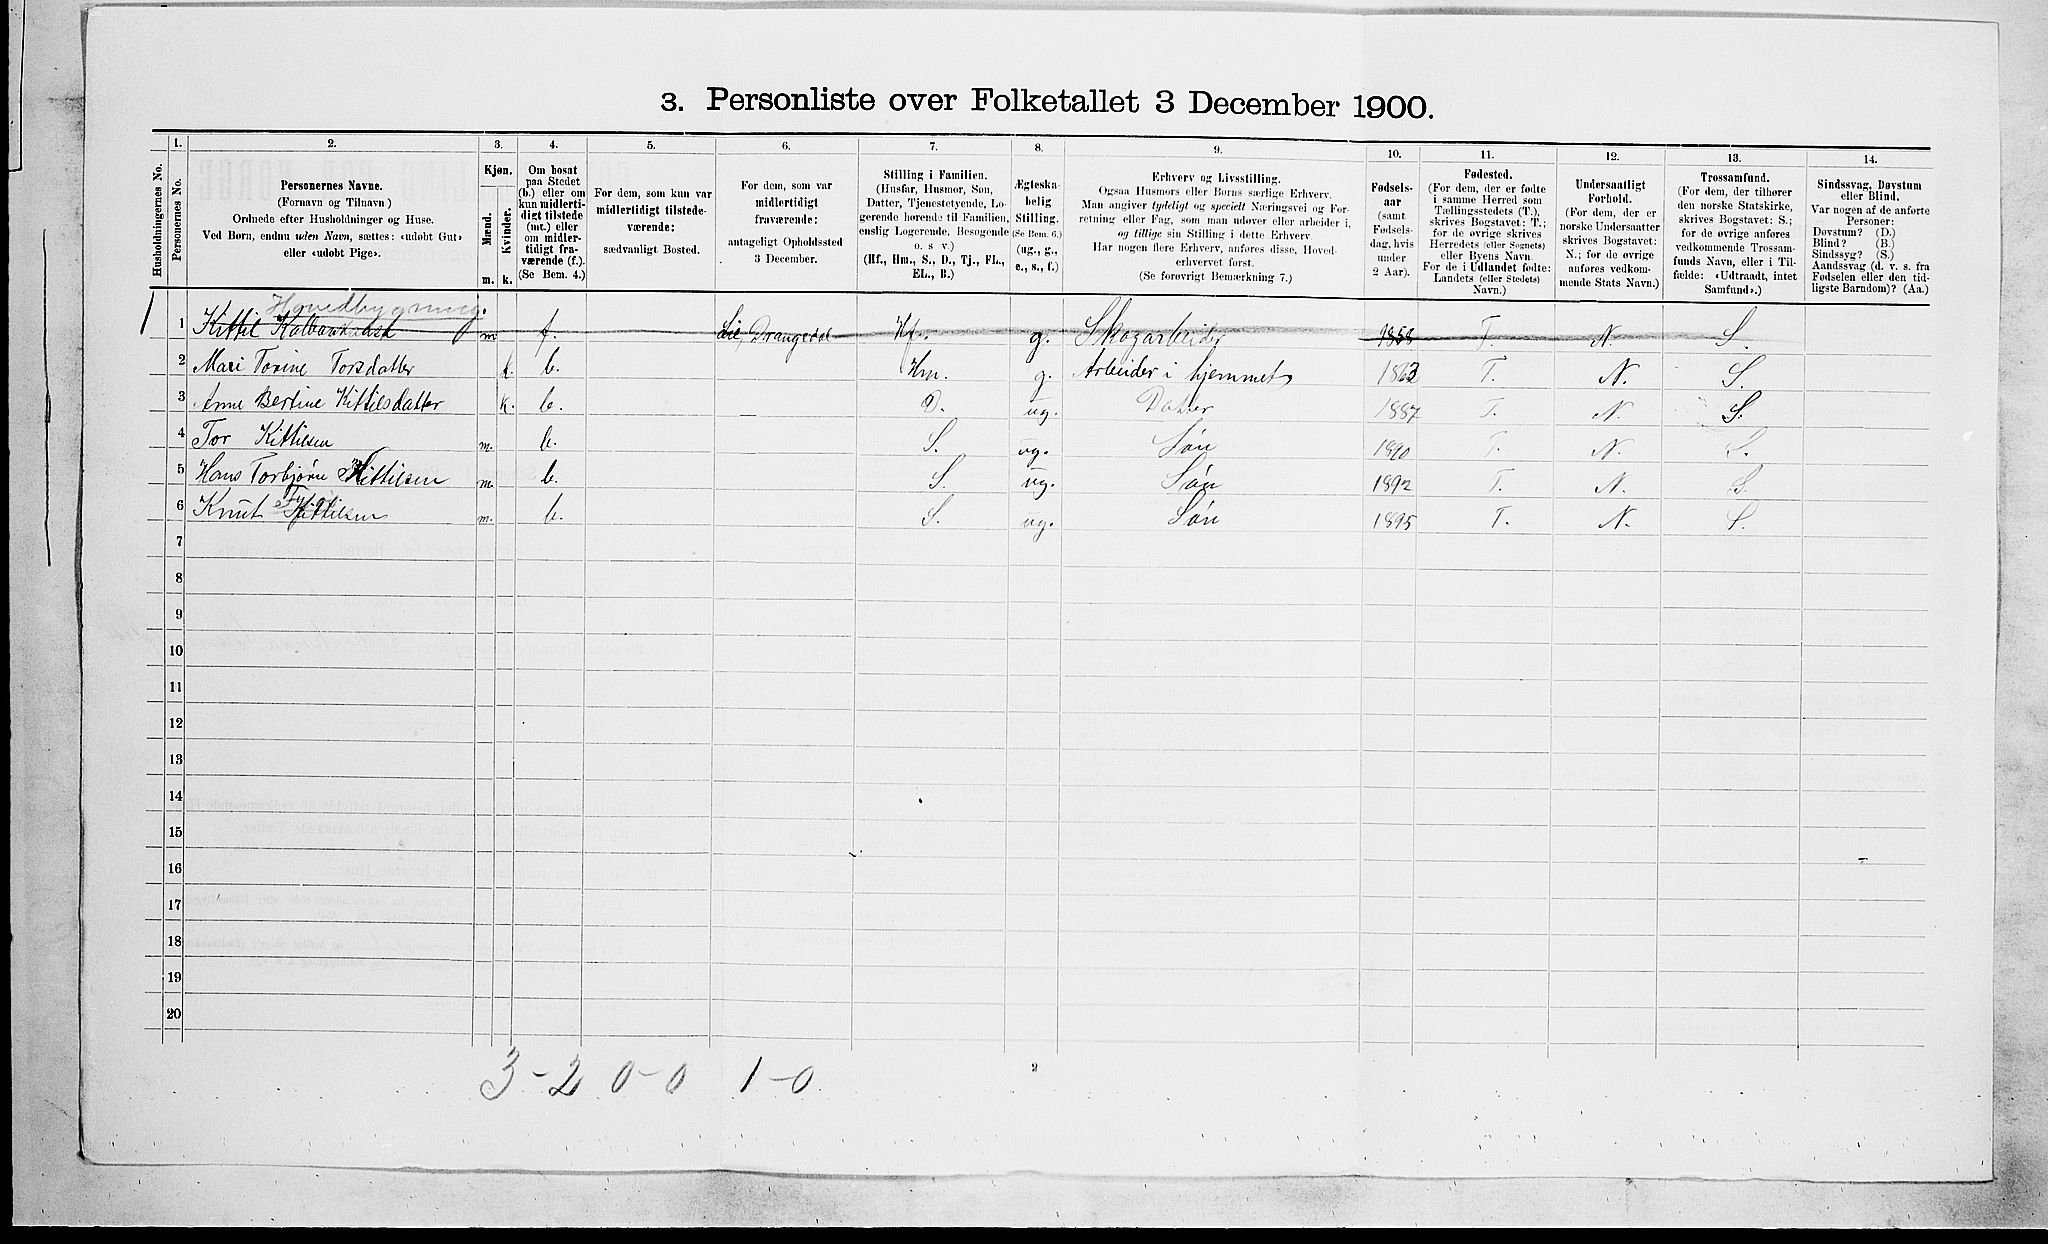 3. Personliste over Folketallet 3 December 1900.
Husholdningernes No.
1.
Personernes No.
2.
Personernes Navne.
(Fornavn og Tilnavn)
Ordnede efter Husholdninger og Huse.
Ved Børn, endnu uden Navn, sættes: «udøbt Gut»
eller «udøbt Pige».
3.
Kjøn.
Mænd. Kvinder.
m. k.
4.
Om bosat
paa Stedet
(b.) eller om
kun midlerti-
digt tilstede
(mt.) eller
om midler-
tidigt fra-
værende (f.).
(Se Bem. 4.)
5.
For dem, som kun var
midlertidigt tilstede-
værende:
sædvanligt Bosted.
6.
For dem, som var
midlertidigt
fraværende:
antageligt Opholdssted
3 December.
7.
Stilling i Familien.
(Husfar, Husmor, Søn,
Datter, Tjenestetyende, Lo-
gerende hørende til Familien,
enslig Logerende, Besøgende
o. s v.)
(Hf., Hm., S., D., Tj., FL.,
EL., B.)
8.
Ægteska-
belig
Stilling.
(Se Bem. 6.)
(ug., g.,
e., s., f.)
9.
Erhverv og Livsstilling.
Ogsaa Husmors eller Børns særlige Erhverv.
Man angiver tydeligt og specielt Næringsvei og For-
retning eller Fag, som man udøver eller arbeider i,
og tillige sin Stilling i dette Erhverv
Har nogen flere Erhverv, anføres disse, Hoved-
erhvervet først.
(Se forøvrigt Bemærkning 7.)
10.
Fødsels-
aar
(samt
Fødsels-
dag, hvis
under
2 Aar).
11.
Fødested.
(For dem, der er fødte
i samme Herred som
Tællingsstedets (T.),
skrives Bogstavet: T.;
for de øvrige skrives
Herredets (eller Sognets)
eller Byens Navn.
For de i Udlandet fødte:
Landets (eller Stedets)
Navn.)
12.
Undersaatligt
Forhold.
(For dem, der er
norske Undersaatter
skrives Bogstavet:
N.; for de øvrige
anføres vedkom-
mende Stats Navn.)
13.
Trossamfund.
(For dem, der tilhører
den norske Statskirke,
skrives Bogstavet: S.;
for de øvrige anføres
vedkommende Trossam-
funds Navn, eller i Til-
fælde: «Udtraadt, intet
Samfund».)
14.
Sindssvag, Døvstum
eller Blind.
Var nogen af de anførte
Personer:
Døvstum? (D.)
Blind? (B.)
Sindssyg? (S.)
Aandssvag (d. v. s. fra
Fødselen eller den tid-
ligste Barndom)? (Aa.)
Hovedbygning.
1 1 Kittil m f. Lie, Drangedal Hf. g. Skogarbeider 1858 T. N. S.
2 Mari Torine Torsdatter k. b. Hm. g. Arbeider i hjemmet 1863 T. N. S.
3 Anne Bertine Kittilsdatter k. b. D. ug. Datter 1887 T. N. S.
4 Tor Kittilsen m. b. S. ug. Søn 1890 T. N. S.
5 Hans Torbjørn Kittilsen m. b. S. ug. Søn 1892 T. N. S.
6 Knut Kittilsen m. b. S. ug. Søn 1895 T. N. S.
7
8
9
10
11
12
13
14
15
16
17
18
19
20
3-2 0-0 1-0.
2